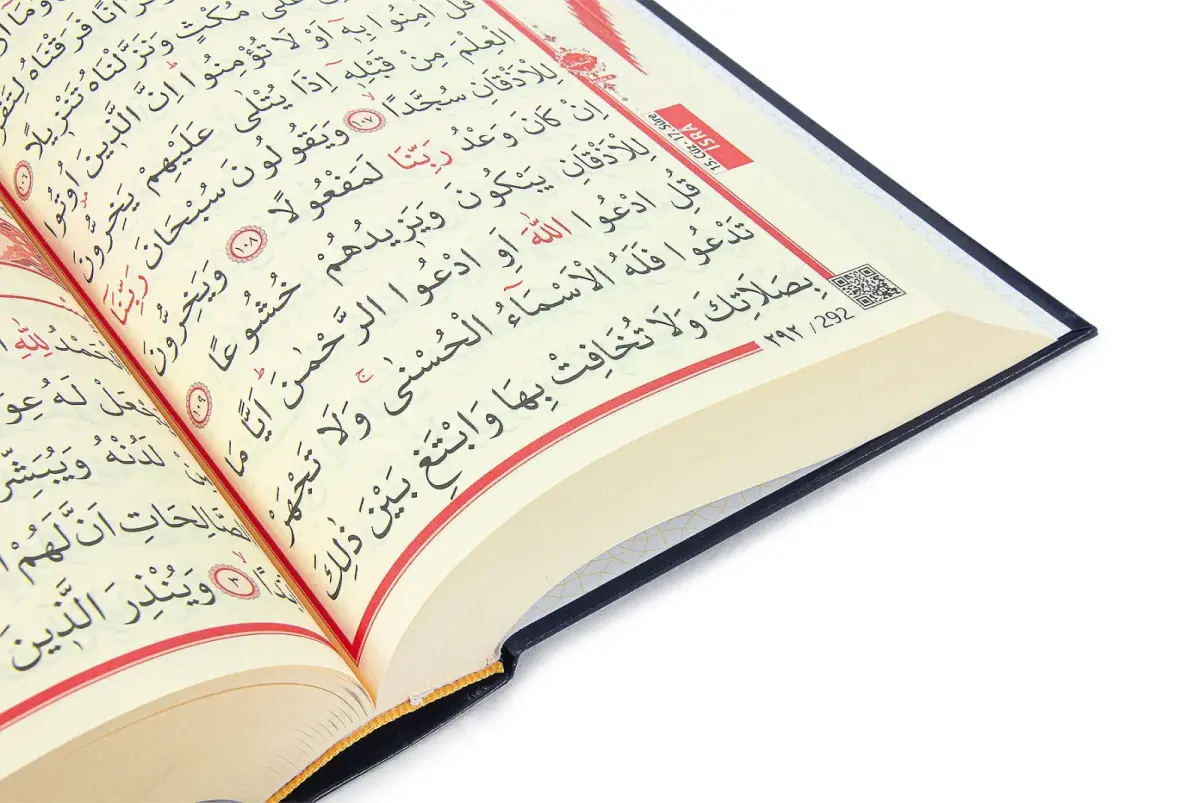 فَرَقْنَاهُ
عَلٰى مُكْثٍ وَنَزَّلْنَاهُ تَنْزِيلًا ١٠٦
قُلْ اٰمِنُوا بِهٖٓ اَوْ لَا تُؤْمِنُوا اِنَّ الَّذِينَ اُوتُوا
الْعِلْمَ مِنْ قَبْلِهٖٓ اِذَا يُتْلٰى عَلَيْهِمْ يَخِرُّونَ
لِلْاَذْقَانِ سُجَّدًا ١٠٧ وَيَقُولُونَ سُبْحَانَ رَبِّنَٓا
اِنْ كَانَ وَعْدُ رَبِّنَا لَمَفْعُولًا ١٠٨ وَيَخِرُّونَ
لِلْاَذْقَانِ يَبْكُونَ وَيَزِيدُهُمْ خُشُوعًا ١٠٩
قُلِ ادْعُوا اللّٰهَ اَوِ ادْعُوا الرَّحْمٰنَ اَيًّا مَا
تَدْعُوا فَلَهُ الْاَسْمَٓاءُ الْحُسْنٰىۚ وَلَا تَجْهَرْ
بِصَلَاتِكَ وَلَا تُخَافِتْ بِهَا وَابْتَغِ بَيْنَ ذٰلِكَ
٢٩٢ / 292
15. Cüz - 17. Sûre
İSRA
لِلّٰهِ
لَهُ
لَدُنْهُ
الصَّالِحَاتِ اَنَّ لَهُمْ
وَيُنْذِرَ الَّذِينَ